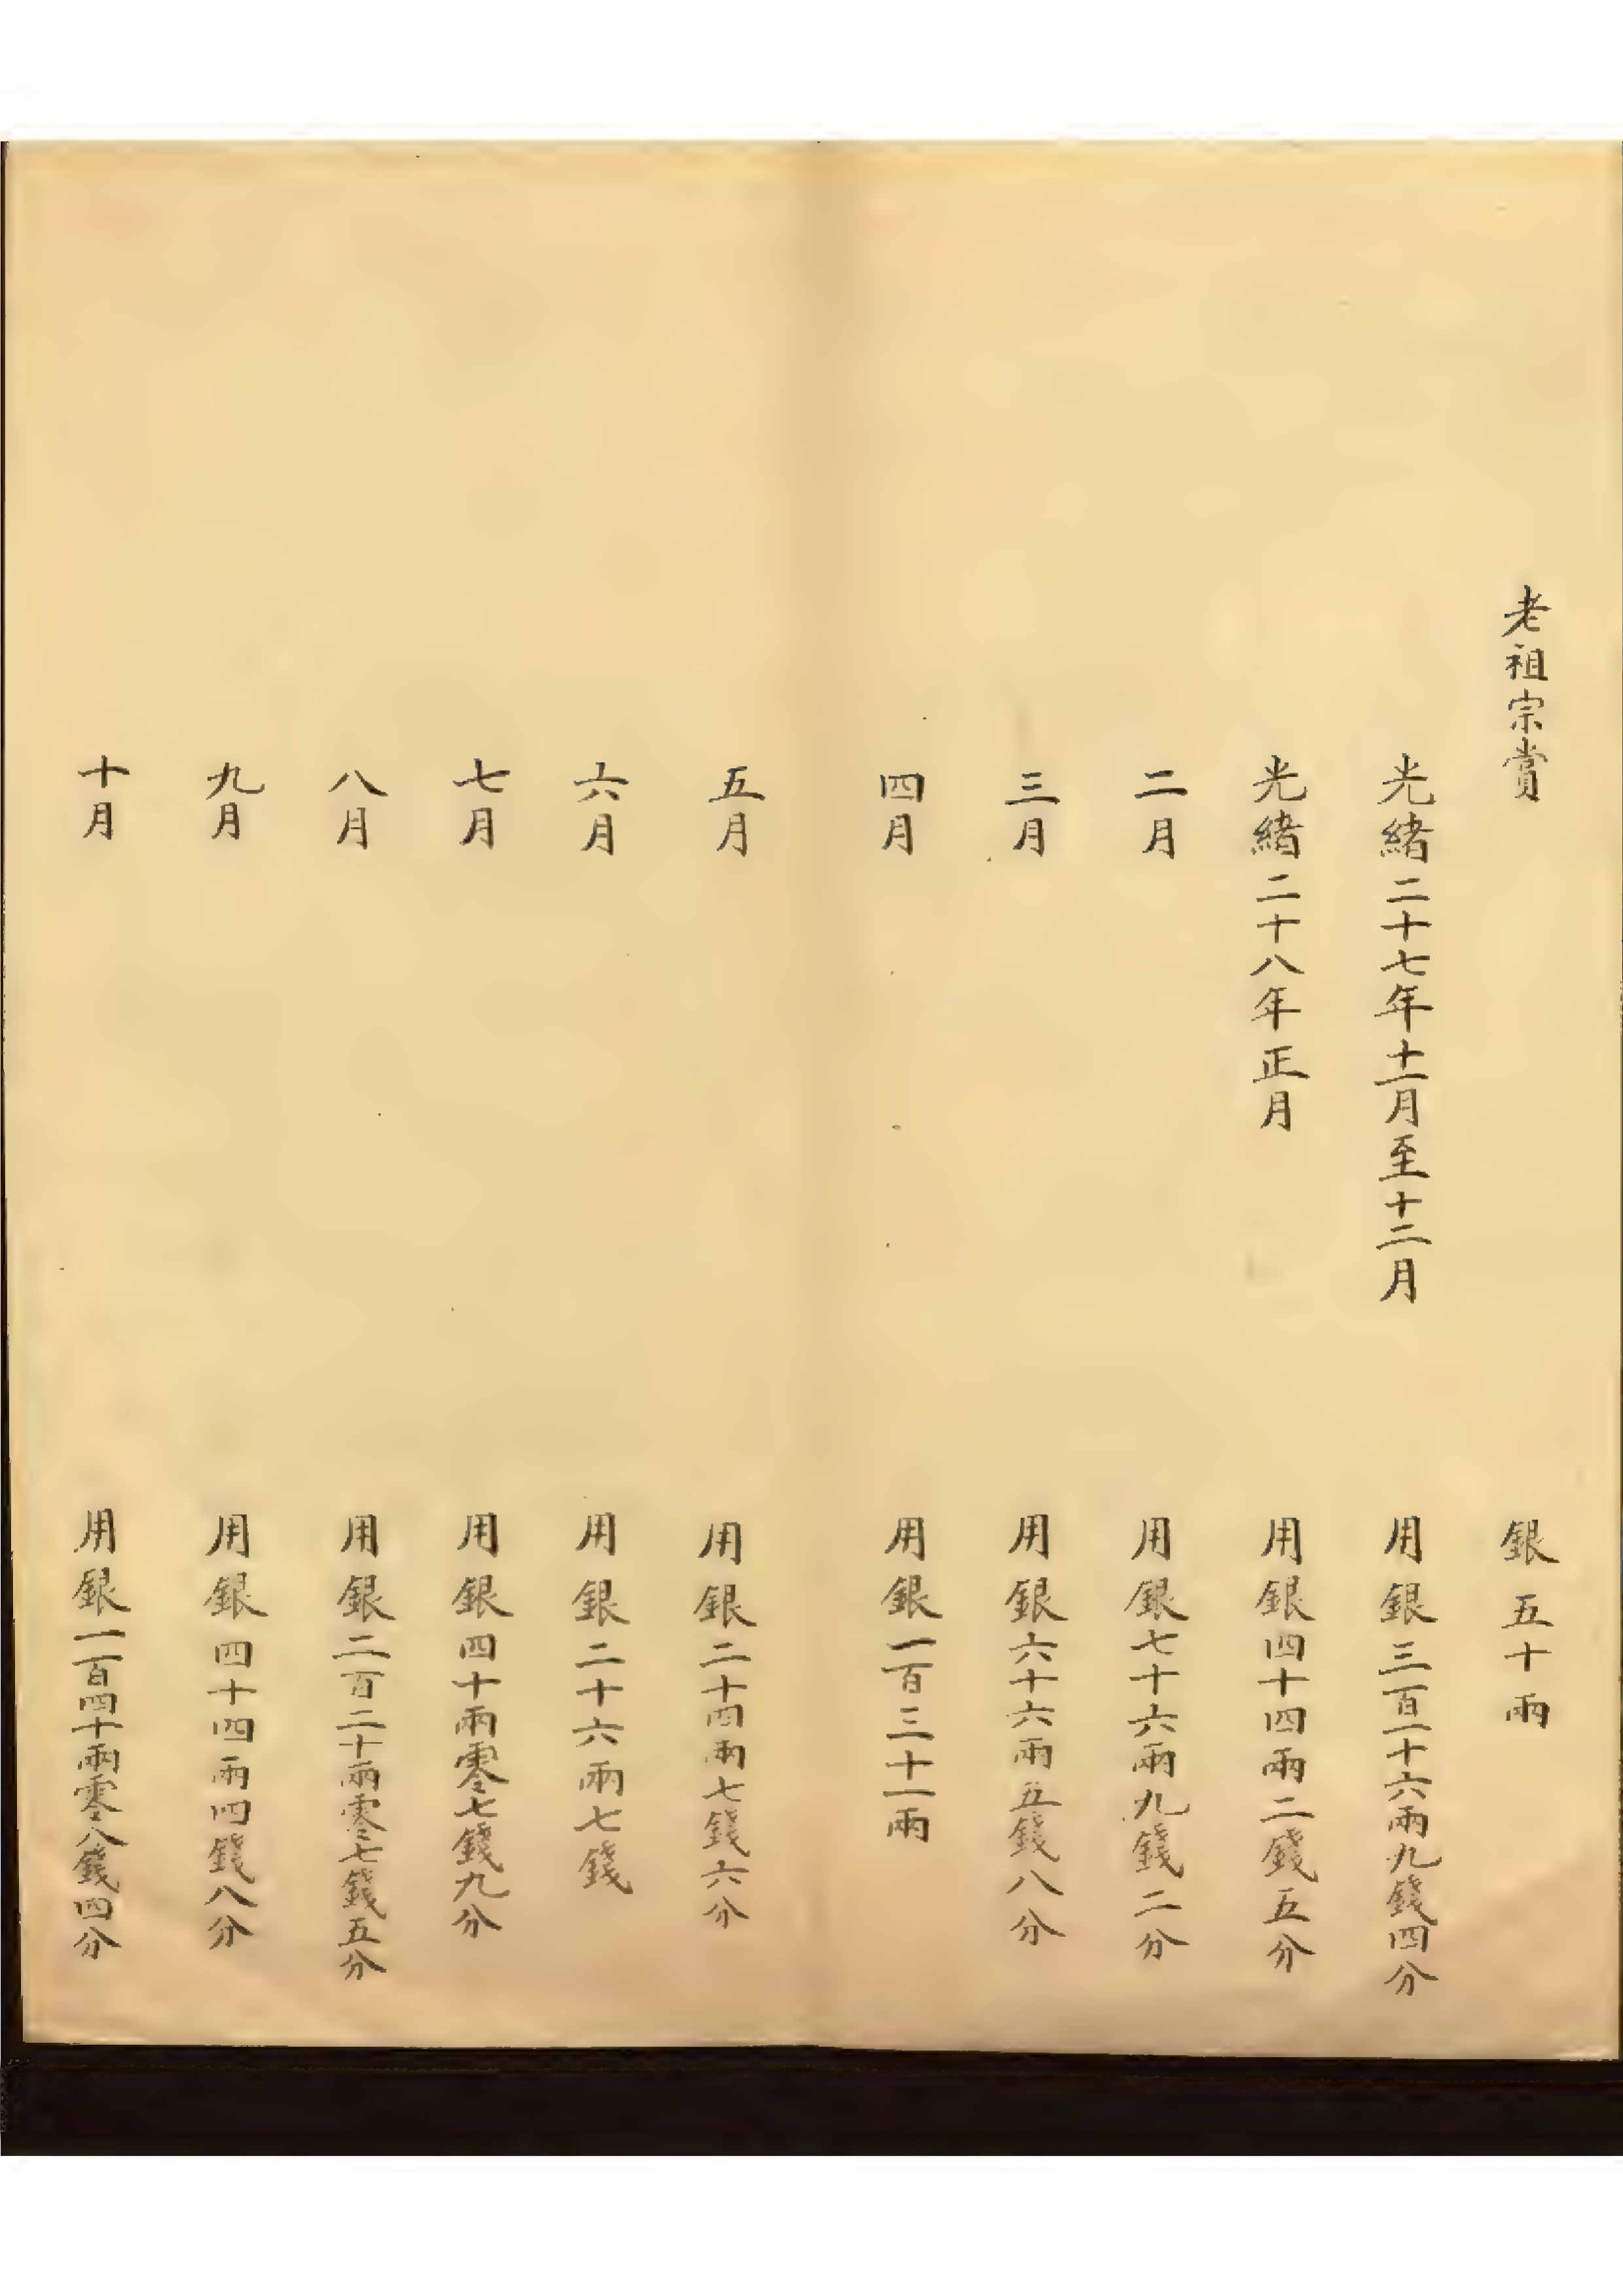 老祖宗賞 銀五十兩
光緒二十七年十一月至十二月 用銀三百二十六兩九錢四分
光緒二十八年正月 用銀四十四兩二錢五分
二月 用銀七十六兩九錢二分
三月 用銀六十六兩五錢八分
四月 用銀一百三十一兩
五月 用銀二十四兩七錢六分
六月 用銀二十六兩七錢
七月 用銀四十兩零七錢九分
八月 用銀二百二十兩零七錢五分
九月 用銀四十四兩四錢八分
十月 用銀一百四十兩零八錢四分